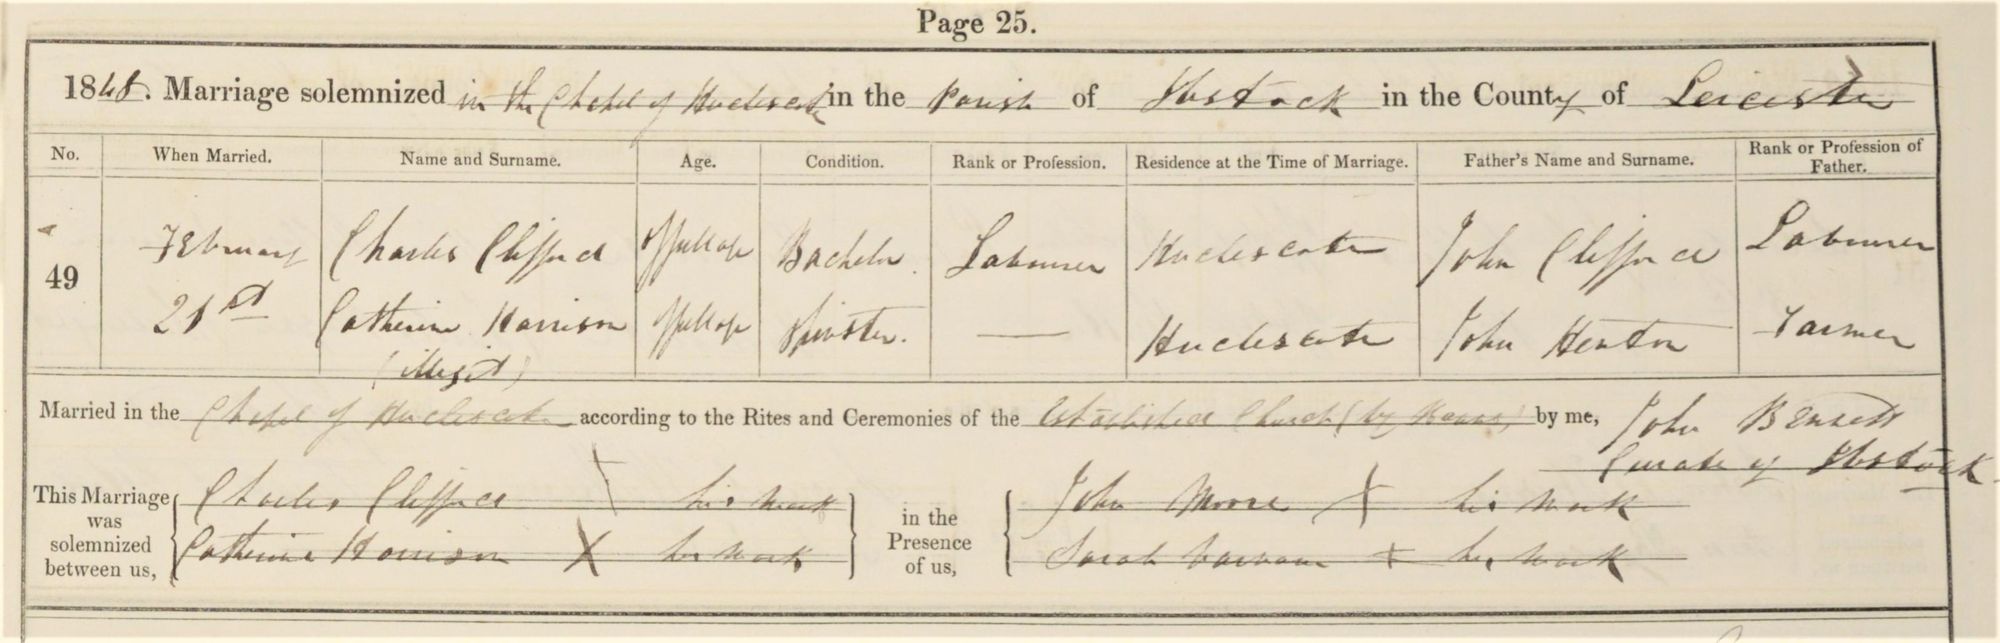 Page 25.
1848. Marriage solemnized in the Chapel of Hugglescote in the Parish of Ibstock in the County of Leicester
No. When Married. Name and Surname. Age. Condition. Rank or Profession. Residence at the Time of Marriage. Father's Name and Surname. Rank or Profession of Father.
49 February 21st
Charles Clifford of full age Bachelor. Labourer John Clifford Labourer
Catherine Harrison of full age Spinster. — John Henton Farmer
(illegit)
Married in the Chapel of according to the Rites and Ceremonies of the Established Church (by Banns) by me, John Bennett
Curate of Ibstock
This Marriage was solemnized between us, Charles Clifford X his mark
Catherine Harrison X her mark
in the Presence of us, John Moore X his mark
Sarah X her mark